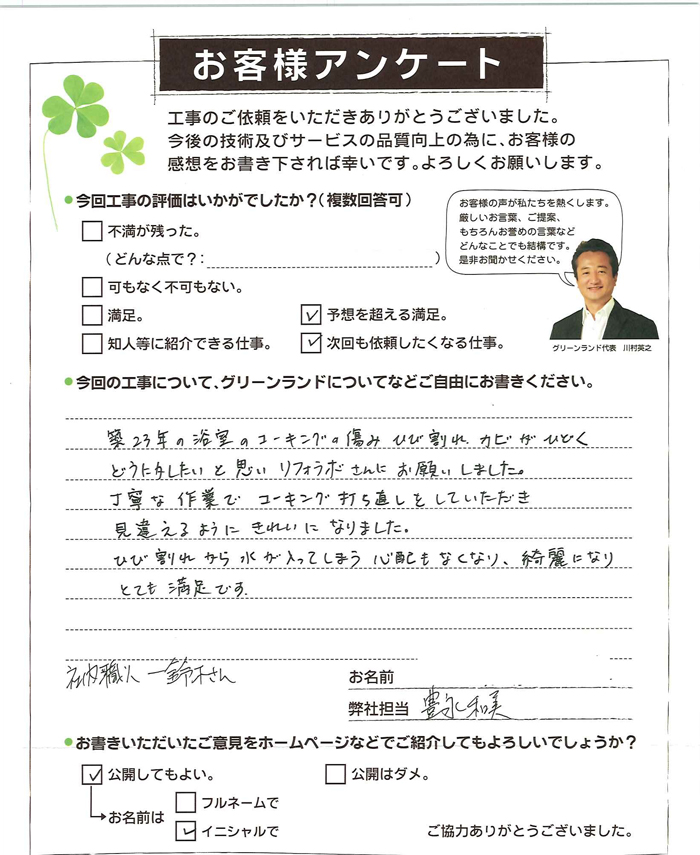 お客様アンケート
工事のご依頼をいただきありがとうございました。
今後の技術及びサービスの品質向上の為に、お客様の
感想をお書き下されば幸いです。よろしくお願いします。
今回工事の評価はいかがでしたか？（複数回答可）
不満が残った。
（どんな点で？：）
可もなく不可もない。
満足。
予想を超える満足。
知人等に紹介できる仕事。
次回も依頼したくなる仕事。
お客様の声が私たちを熱くします。
厳しいお言葉、ご提案、
もちろんお誉めの言葉など
どんなことでも結構です。
是非お聞かせください。
グリーンランド代表 川村英之
今回の工事について、グリーンランドについてなどご自由にお書きください。
築23年の浴室のコーキングの傷み ひび割れ、カビがひどく
どうにかしたいと思い リフォラボさんにお願いしました。
丁寧な作業で コーキング打ち直しをしていただき
見違えるように きれいに なりました。
ひび割れから水が入ってしまう 心配もなくなり、綺麗になり
とても 満足です
社内職人 鈴木さん
お名前
弊社担当 豊永 和美
お書きいただいたご意見をホームページなどでご紹介してもよろしいでしょうか？
公開してもよい。
公開はダメ。
お名前は
フルネームで
イニシャルで
ご協力ありがとうございました。